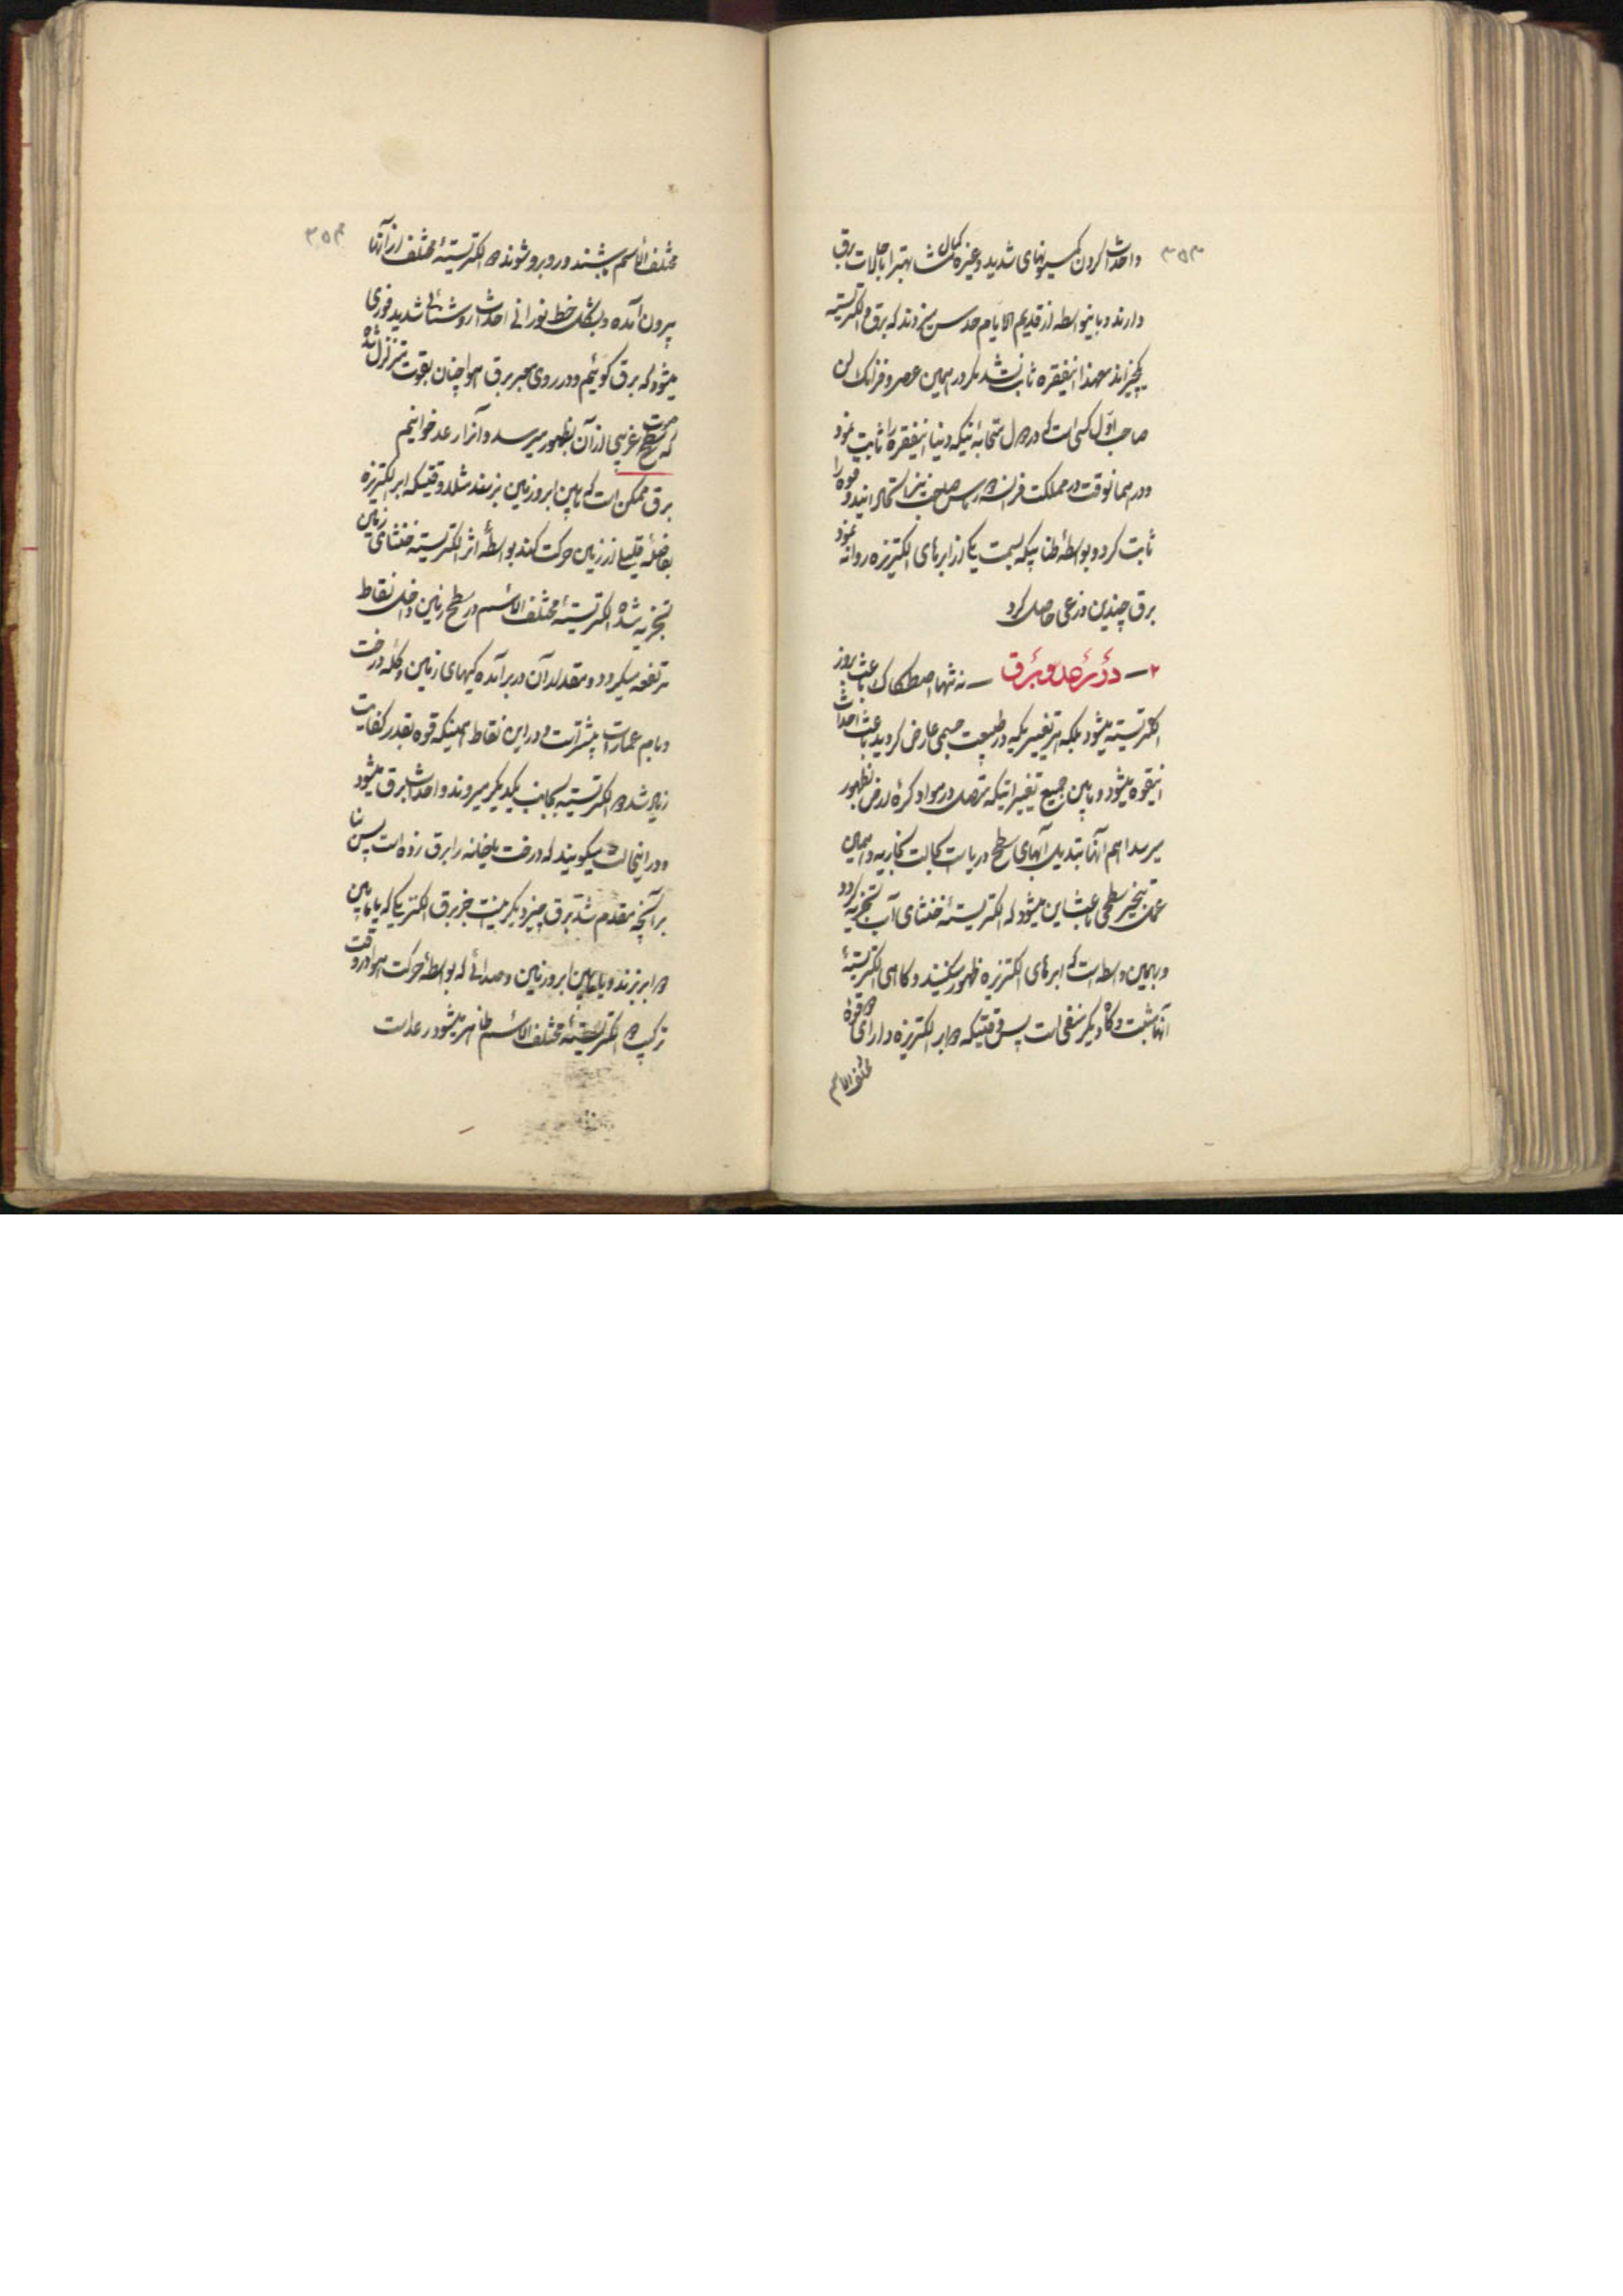 ۳۵۳
واحداث کردن کمسیونهای شدید وغیره کمال مشابهت را باحالات برق
دارند وباینواسطه از قدیم الایام حدس میزدند که برق و الکتریسیته
یکچیزاند معهذا اینفقره ثابت نشد مگر در همین عصر و فرانکلن
صاحب اوّل کسی است که در ینیکه دنیا اینفقره را ثابت نمود
ودر همانوقت در مملکت فرانسه رماس صاحب نیز استحاد ایندو قوه را
ثابت کرد و بواسطهٔ طنابیکه بسمت یکی از ابرهای الکتریزه روانه نمود
برق چندین ذرعی حاصل کرد
۲ – در رعد و برق – نه تنها اصطکاک باعث بروز
الکتریسیته میشود بلکه هر تغییریکه در طبیعت جسمی عارض گردید باعث احداث
اینقوه میشود و مابین جمیع تغییراتیکه متصل در مواد کرهٔ ارض بظهور
میرسد اهم آنها تبدیل آبهای سطح دریاست بحالت بخاریه و همین
عمل تبخیر سطحی باعث این میشود که الکتریسیتهٔ خنثای آب تجزیه گردد
و بهمین واسطه است که ابرهای الکتریزه ظهور میکنند و گاهی الکتریسیتهٔ
آنها مثبت و گاه دیگر منفی است پس وقتیکه دو ابر الکتریزه دارای دو قوهٔ
مختلف الاسم
۳۵۴
مختلف الاسم باشند و روبرو شوند دو الکتریسیتهٔ مختلف از آنها
بیرون آمده و بشکل خط نورانی احداث روشنائی شدید فوری
میشود که برق گوئیم و در روی معبر برق هوا چنان بقوت متزلزل شده
که صوت غریبی از آن بظهور میرسد و آنرا رعد خوانیم
برق ممکن است که مابین ابر و زمین بزند مثلا وقتیکه ابر الکتریزه
بفاصلهٔ قلیلی از زمین حرکت کند بواسطهٔ اثر الکتریسیته خنثای زمین
تجزیه شده الکتریسیتهٔ مختلف الاسم در سطح زمین داخل نقاط
مرتفعه میگردد و مقدار آن در برآمده گیهای زمین و کلهٔ درخت
و بام عمارات بیشتر است و در این نقاط همینکه قوه بقدر کفایت
زیاد شد دو الکتریسیته بجانب یکدیگر میروند و احداث برق میشود
و در اینحالت میگویند که درخت یا خانه را برق زده است پس بنا
بر آنچه مقدم شد برق چیز دیگر نیست جز برق الکتریکی که یا مابین
دو ابر بزند و یا مابین ابر و زمین و صدائی که بواسطهٔ حرکت هوا در وقت
ترکیب دو الکتریسیتهٔ مختلف الاسم ظاهر میشود رعد است